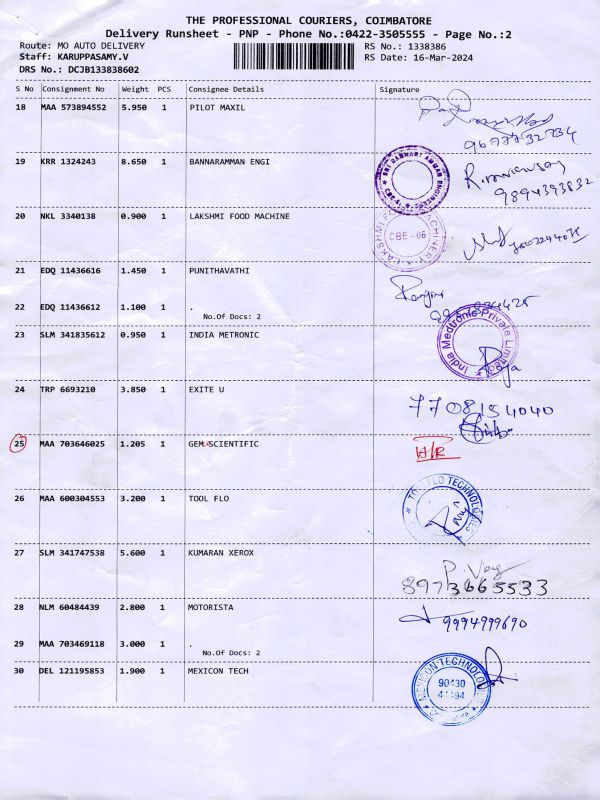 THE PROFESSIONAL COURIERS, COIMBATORE
Delivery Runsheet - PNP - Phone No.:0422-3505555 - Page No.:2
Route: MO AUTO DELIVERY RS No.: 1338386
Staff: KARUPPASAMY.V RS Date: 16-Mar-2024
DRS No.: DCJB133838602
S No Consignment No Weight PCS Consignee Details Signature
18 MAA 573894552 5.950 1 PILOT MAXIL
19 KRR 1324243 8.650 1 BANNARAMMAN ENGI
9894393832
20 NKL 3340138 0.900 1 LAKSHMI FOOD MACHINE
CBE - 06
21 EDQ 11436616 1.450 1 PUNITHAVATHI
22 EDQ 11436612 1.100 1 .
No.Of Docs: 2
23 SLM 341835612 0.950 1 INDIA METRONIC
India Medtronic Private Limited
24 TRP 6693210 3.850 1 EXITE U
7708154040
25 MAA 703646025 1.205 1 GEM SCIENTIFIC
26 MAA 600304553 3.200 1 TOOL FLO
TOOL FLO TECHNOLOGIES
27 SLM 341747538 5.600 1 KUMARAN XEROX
8973665533
28 NLM 60484439 2.800 1 MOTORISTA
9994999690
29 MAA 703469118 3.000 1 .
No.Of Docs: 2
30 DEL 121195853 1.900 1 MEXICON TECH